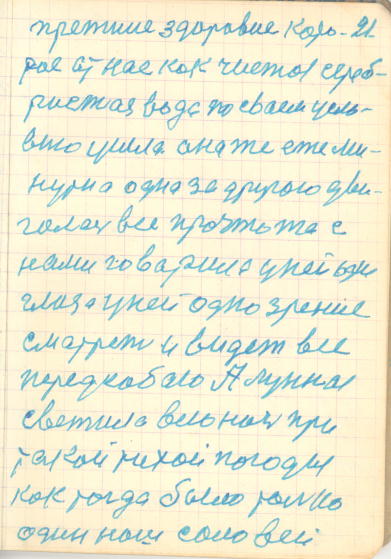 прежние здоровие кото- 21.
рое от нас как чистая сереб-
ристая вода по сваем
ушла она же еже ми-
нутна одна за другою дви-
галась все прочтожа с
нами говарила у ней одни
глаза у ней одно зрение
сматрет и видет все
передсобаю А лунная
светила всю ноч при
такой тихой погоды
как тогда было толко
один наш соловей